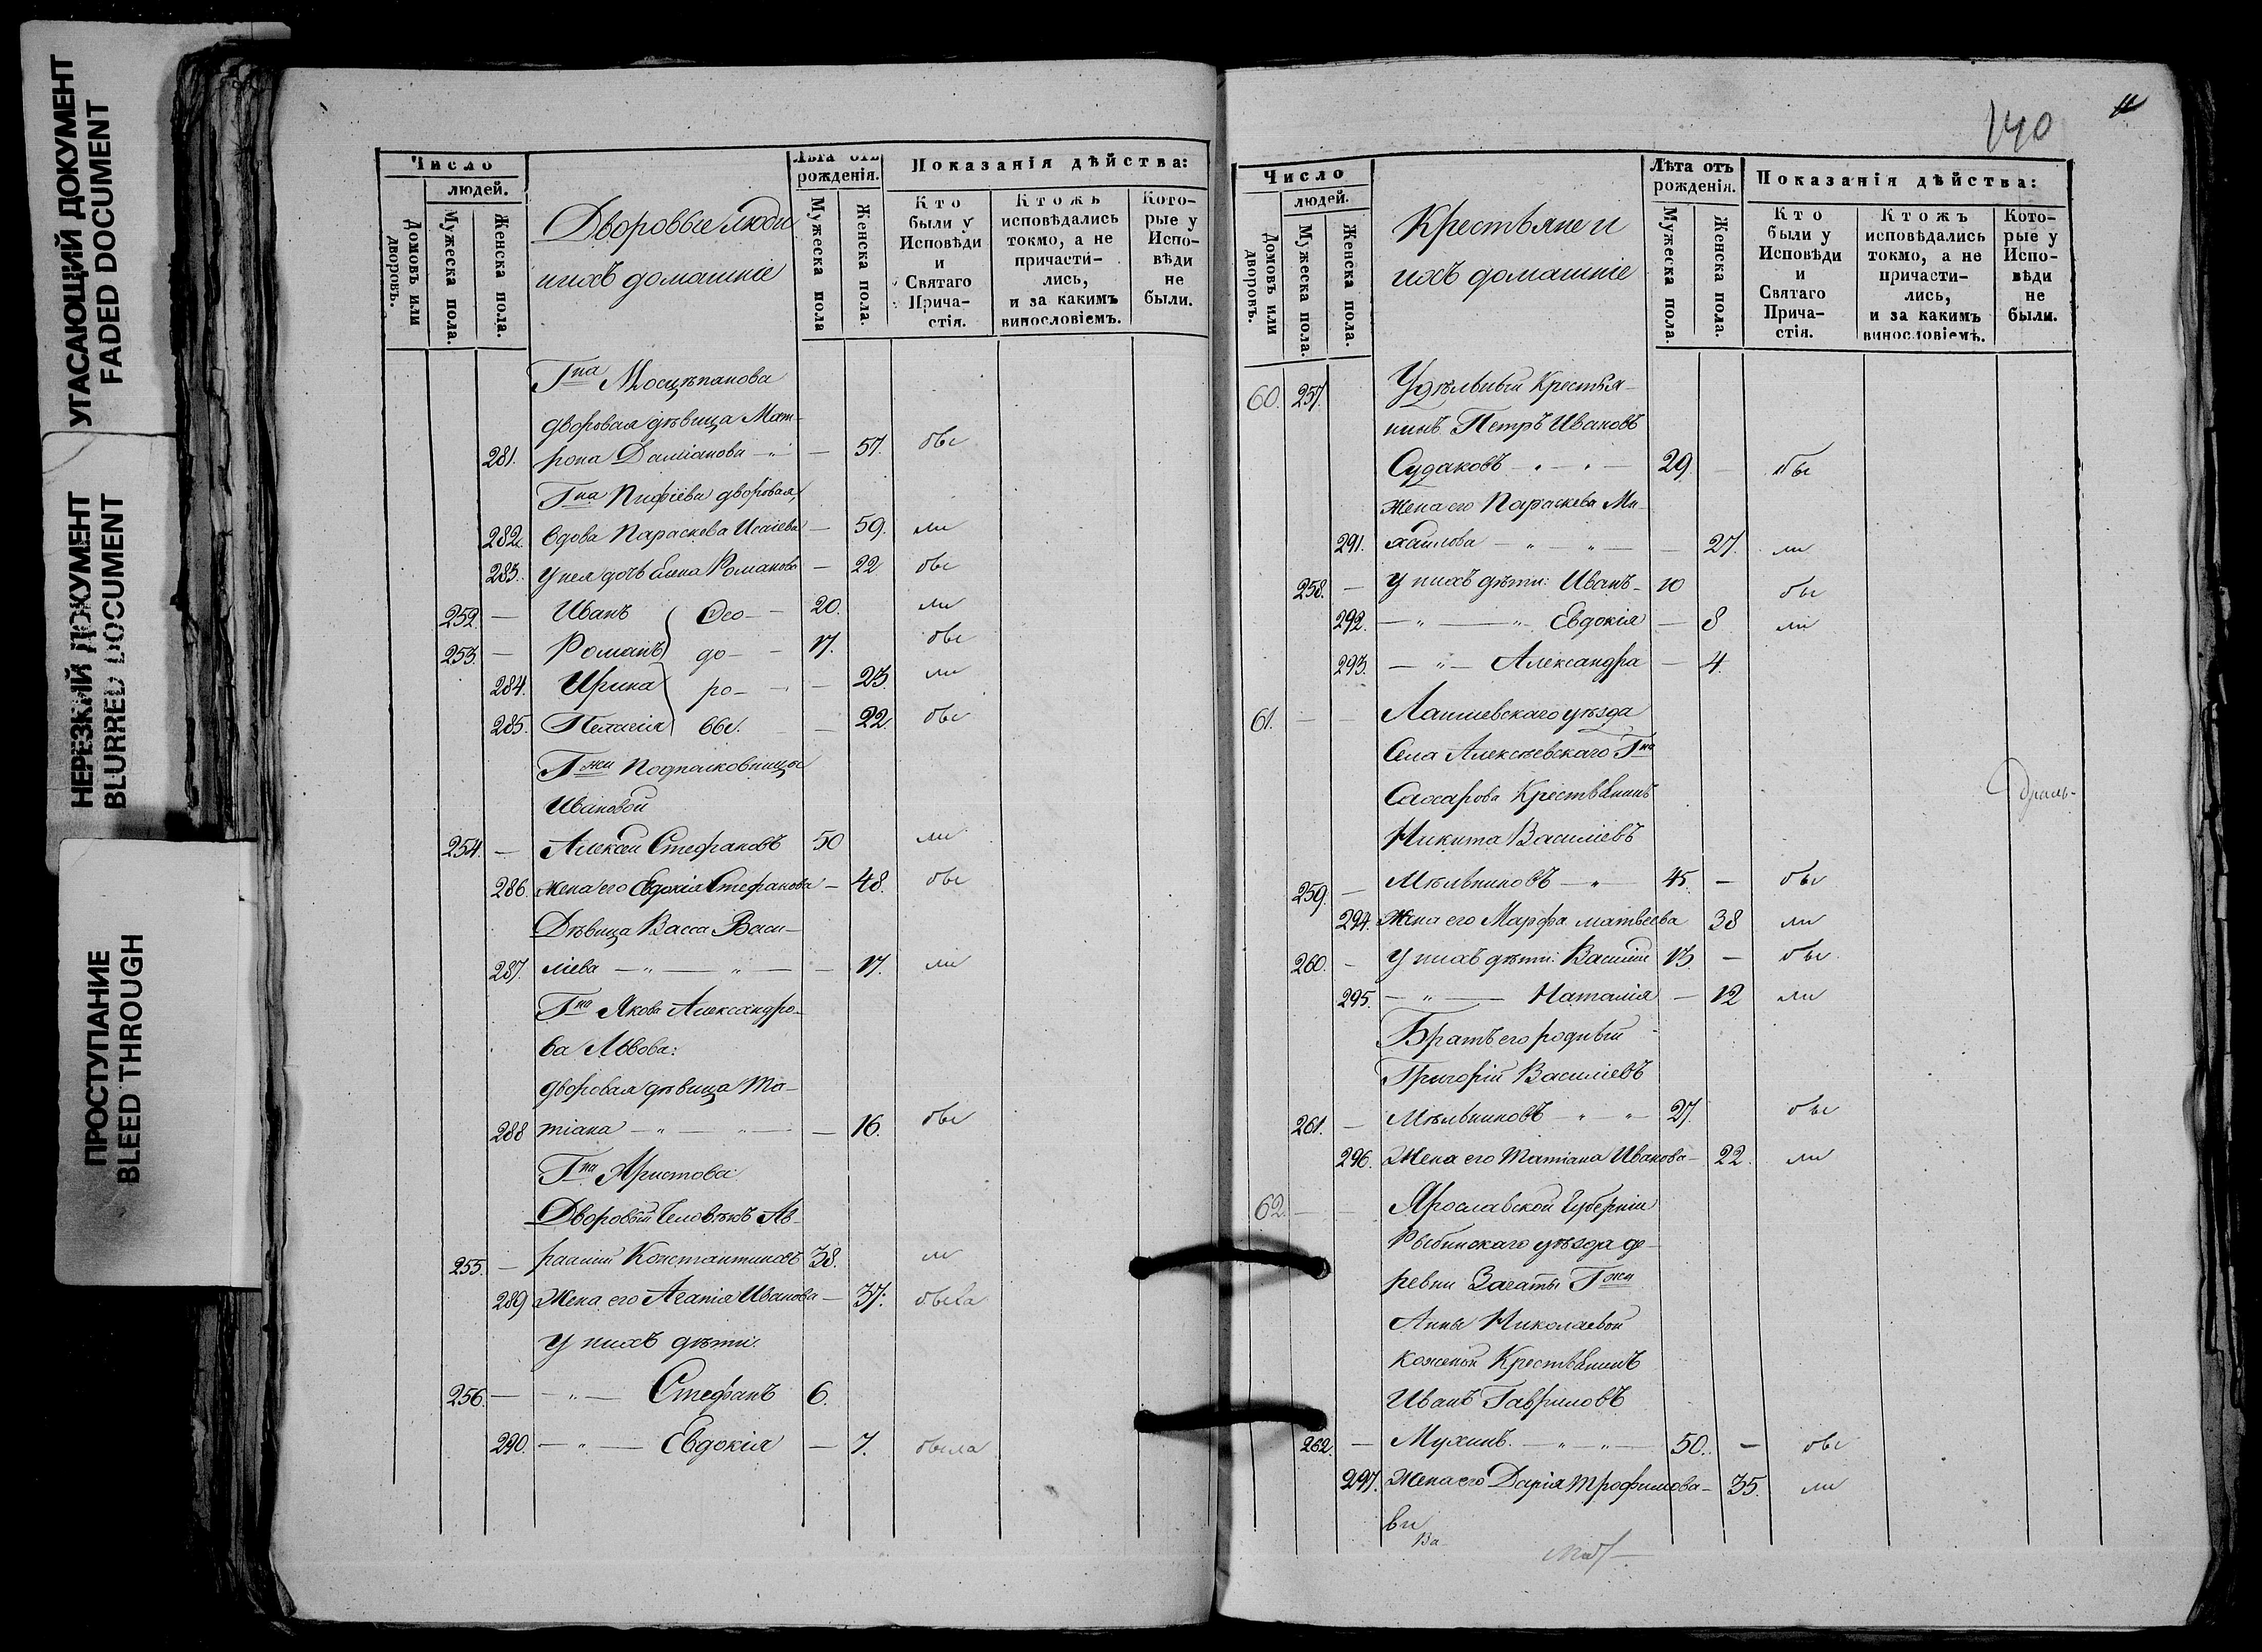 УГАСАЮЩИЙ ДОКУМЕНТ
FADED DOCUMENT
НЕРЕЗКИЙ ДОКУМЕНТ
BLURRED DOCUMENT
ПРОСТУПАНИЕ
BLEED THROUGH
Число
людей.
Домовъ или дворовъ.
Мужеска пола.
Женска пола.
Дворовые люди
и ихъ домашніе
Лѣта отъ
рожденія.
Мужеска пола
Женска пола.
Показанія дѣйства:
Кто
были у
Исповѣди
и
Святаго
Прича-
стія.
Ктожъ
исповѣдались
токмо, а не
причасти-
лись,
и за какимъ
винословіемъ.
Кото-
рые у
Испо-
вѣди
не
были.
Гна Мосцѣпанова
дворовая дѣвица Мат-
281. рона Даміанова — 57. бы
Гна дворовая
282. вдова Параскева Исаіева — 59. ли
283. у нея дочь Анна Романова — 22 бы
252. — Иванъ Ѳео- 20. ли
253. — Романъ до- 17. бы
284. Ирина ро- — 23. ли
285. Пелагія вы. — 22. бы
Гжи Подполковницы
Ивановой
254. — Алексѣй Стефановъ 50 ли
286. жена его Евдокія Стефанова — 48. бы
Дѣвица Васса Васи-
287. ліева — „ — „ — — 17. ли
Гна Якова Александро-
ва Львова:
дворовая дѣвица Та-
288 тіана — „ — „ — — 16. бы
Гна Аристова
Дворовый Человѣкъ Ав-
255. — раамій Константиновъ 38. ли
289 Жена его Агапія Иванова — 37. обыва
у нихъ дѣти:
256. — — „ — Стефанъ 6.
290. — „ — Евдокія — 7. была
140
Число
людей.
Домовъ или дворовъ.
Мужеска пола.
Женска пола.
Крестьяне и
ихъ домашніе
Лѣта отъ
рожденія.
Мужеска пола.
Женска пола.
Показанія дѣйства:
Кто
были у
Исповѣди
и
Святаго
Прича-
стія.
Ктожъ
исповѣдались
токмо, а не
причасти-
лись,
и за какимъ
винословіемъ.
Кото-
рые у
Испо-
вѣди
не
были.
60. 257. Удѣльный Крестья-
нинъ Петръ Ивановъ
Судаковъ — „ — „ — 29. — бы
жена его Параскева Ми-
291. хайлова — „ — „ — — 27. ли
258. — у нихъ дѣти: Иванъ — 10 бы
292. — „ — „ Евдокія — 8 ли
293. — „ — Александра — 4.
61. — — Лаишевскаго уѣзда
Села Алексѣевскаго Гна
Сахарова Крестьянинъ
Никита Василіевъ
259. — Мѣльниковъ — „ — 45. — бы
294. Жена его Марфа Матвеева 38 ли
260. — у нихъ дѣти: Василій 13. — бы
295. — „ — Наталія — 12 ли
Братъ его родный
Григорій Василіевъ
261. — Мѣльниковъ — „ — „ 27. бы
296. Жена его Татіана Иванова — 22. ли
62. — — Ярославской Губерніи
Рыбинскаго уѣзда де-
ревни Загаты Гжи
Анны Николаевой
Кожевой Крестьянинъ
Иванъ Гавриловъ
262. — Мухинъ. — „ — „ — 50. — бы
297. Жена его Дарія Трофимова — 35. ли